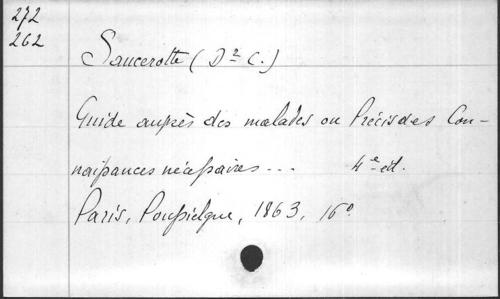 272
262
Saucerotte (Dr C.)
Guide auprès des malades ou Précis des Con-
naissances nécessaires ... 4e éd.
Paris, Poussielgue, 1863, 16°